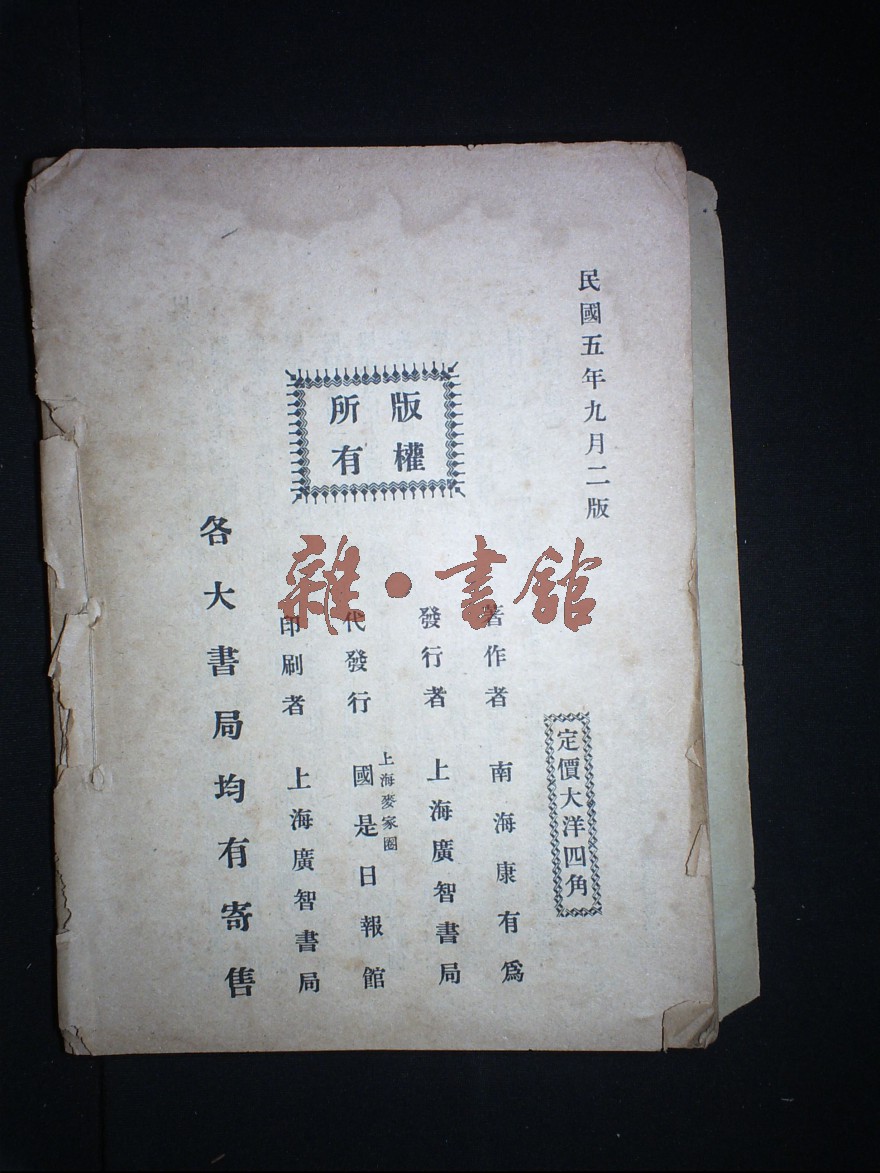 民國五年九月二版
定價大洋四角
版權
所有
著作者 南海康有爲
發行者 上海廣智書局
代發行 上海麥家圈 國是日報館
印刷者 上海廣智書局
各大書局均有寄售
雜·書館